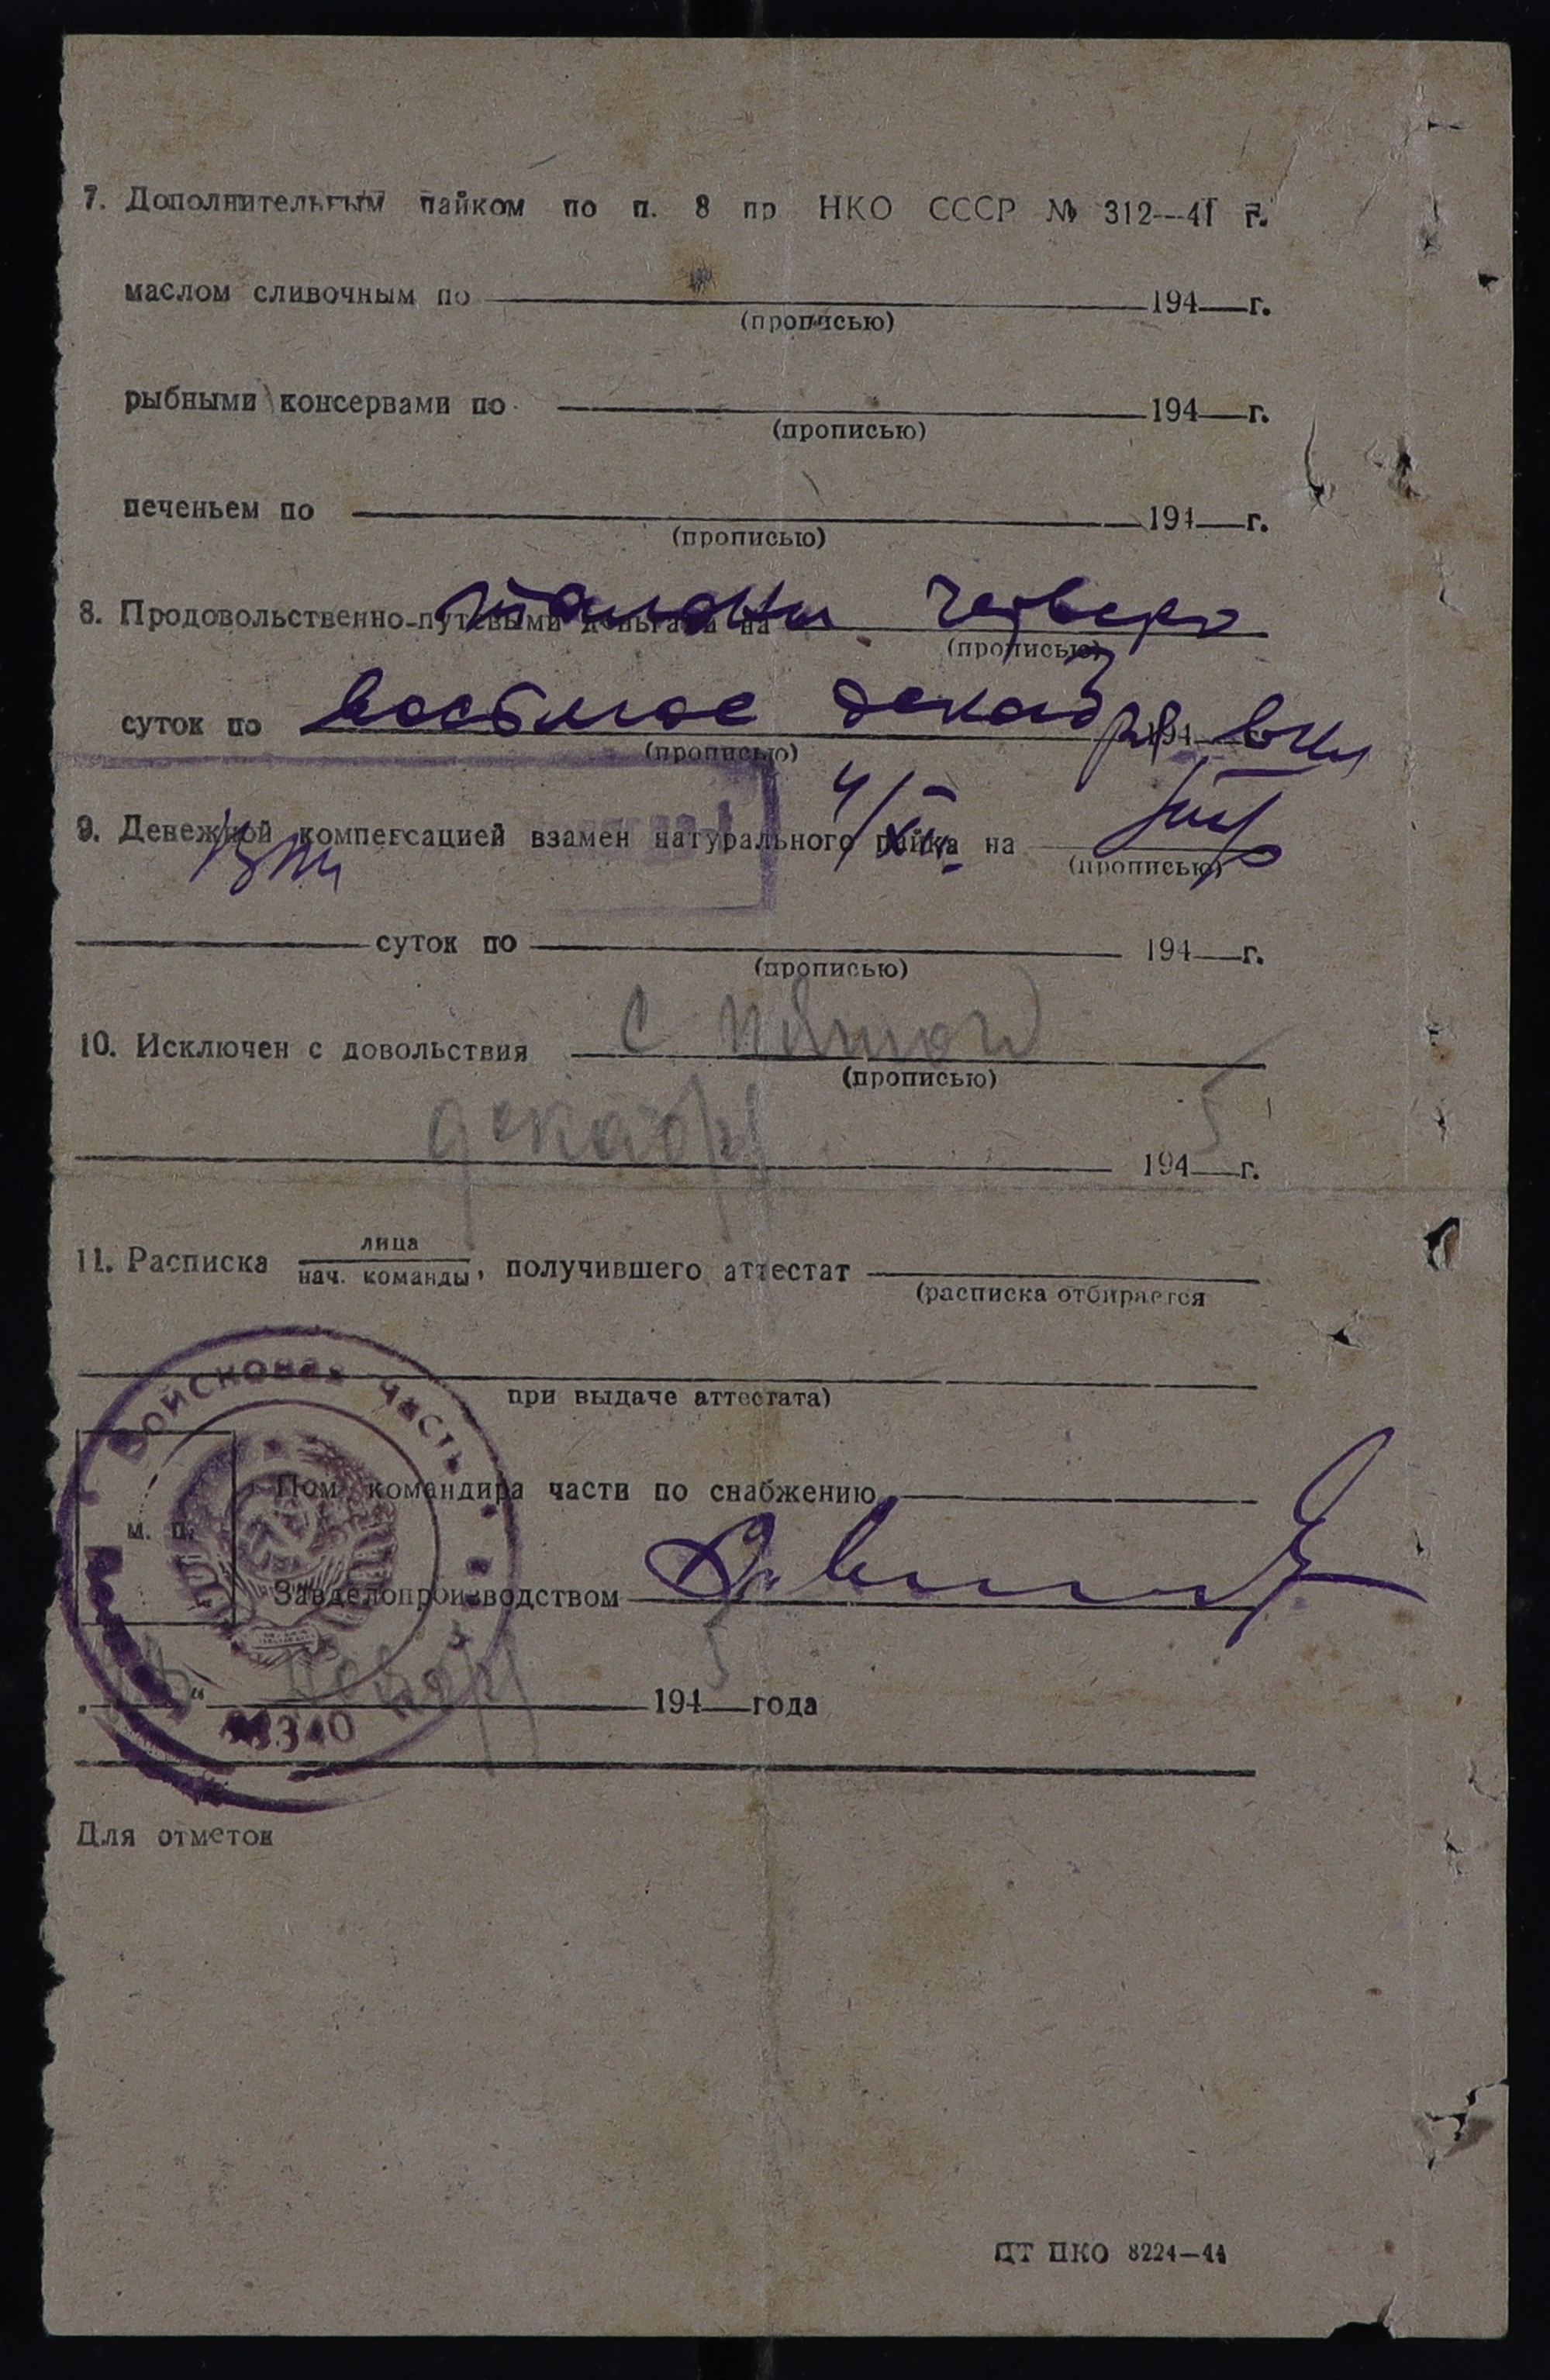 7. Дополнительным пайком по п. 8 пр НКО СССР № 312—41 г.
маслом сливочным по 194 г.
(прописью)
рыбными консервами по 194 г.
(прописью)
печеньем по 194 г.
(прописью)
8. Продовольственно-путевыми деньгами на талоны четверо
(прописью)
суток по восьмое декабря 194 вкл
(прописью)
4/XII
9. Денежной компенсацией взамен натурального пайка на
(прописью)
суток по 194 г.
(прописью)
10. Исключен с довольствия с пятого
(прописью)
декабря 1945 г.
11. Расписка лица
нач. команды, получившего аттестат
(расписка отбирается
при выдаче аттестата)
Войсковая часть
Пом. командира части по снабжению
м. п.
Завделопроизводством
" 1945 года
Для отметок
ЦТ НКО 8224—44